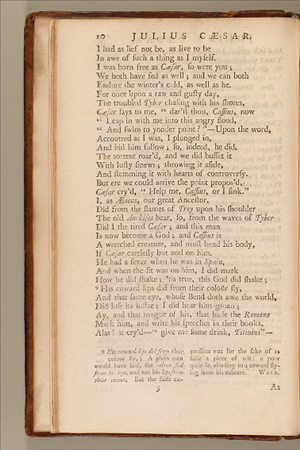 10 JULIUS CÆSAR.
I had as lief not be, as live to be
In awe of such a thing as I myself.
I was born free as Cæsar, so were you;
We both have fed as well; and we can both
Endure the winter's cold, as well as he.
For once upon a raw and gusty day,
The troubled Tyber chafing with his shores,
Cæsar says to me, “ dar'st thou, Cassius, now
“ Leap in with me into this angry flood,
“ And swim to yonder point?”—Upon the word,
Accoutred as I was, I plunged in,
And bid him follow; so, indeed, he did.
The torrent roar'd, and we did buffet it
With lusty sinews; throwing it aside,
And stemming it with hearts of controversy.
But ere we could arrive the point propos'd,
Cæsar cry'd, “ Help me, Cassius, or I sink.”
I, as Æneas, our great Ancestor,
Did from the flames of Troy upon his shoulder
The old Anchises bear, so, from the waves of Tyber
Did I the tired Cæsar; and this man
Is now become a God; and Cassius is
A wretched creature, and must bend his body,
If Cæsar carelesly but nod on him.
He had a fever when he was in Spain,
And when the fit was on him, I did mark
How he did shake; 'tis true, this God did shake;
His coward lips did from their colour fly,
And that same eye, whose Bend doth awe the world,
Did lose its lustre; I did hear him groan:
Ay, and that tongue of his, that bade the Romans
Mark him, and write his speeches in their books,
Alas! it cry'd—“ give me some drink, Titinius”—
9 His coward lips did from their
colour fly,] A plain man
would have said, the colour fled
from his lips, and not his lips from
their colour. But the false ex-
pression was for the sake of as
false a piece of wit: a poor
quibble, alluding to a coward fly-
ing from his colours. WARB.
3 As